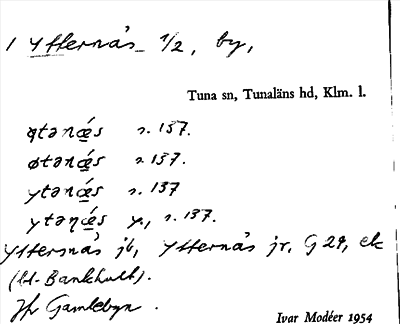 1 Ytternäs 1/2, by,
Tuna sn, Tunaläns hd, Klm. l.
ɵtənǽs s. 137.
øtənǽs s. 137.
ytənǽs s. 137
ytəηǽs y., s. 137.
Ytternäs jb, Ytternäs jr, G 29, ek
(bl. Bankhult).
Jfr Gamlebyn.
Ivar Modéer 1954